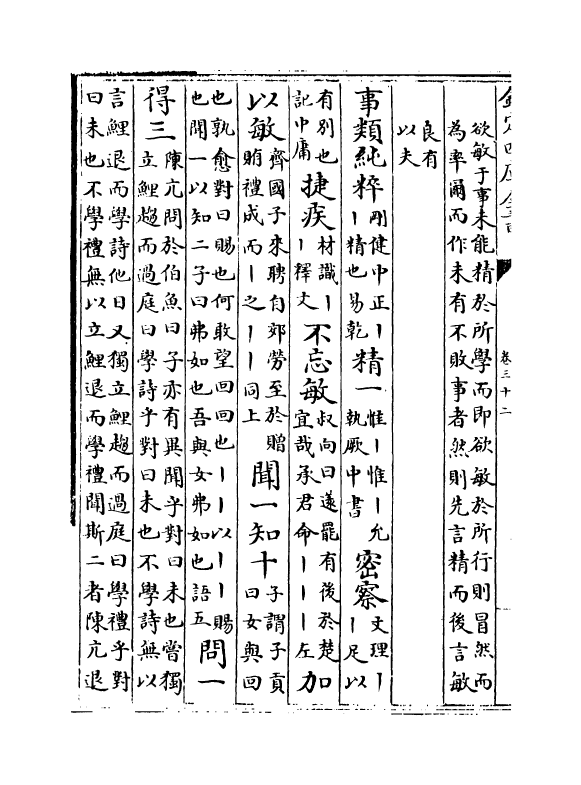 欽定四庫全書 卷三十二
欲敏于事未能精於所學而即欲敏於所行則冒然而
為率爾而作未有不敗事者然則先言精而後言敏
良有
以夫
事類純粹 剛健中正丨丨精也易乾 精一 惟丨惟丨允執厥中書 密察 文理丨丨足以
有別也記中庸 捷疾 材識丨丨釋文 不忘敏 叔向曰薳罷有後於楚宜哉承君命丨丨丨左 加
以敏 齊國子來聘自郊勞至於贈賄禮成而丨之丨丨同上 聞一知十 子謂子貢曰女與回
也孰愈對曰賜也何敢望回回也丨丨以丨丨賜也聞一以知二子曰弗如也吾與女弗如也語五 問一
得三 陳亢問於伯魚曰子亦有異聞乎對曰未也嘗獨立鯉趨而過庭曰學詩乎對曰未也不學詩無以
言鯉退而學詩他日又獨立鯉趨而過庭曰學禮乎對
曰未也不學禮無以立鯉退而學禮聞斯二者陳亢退